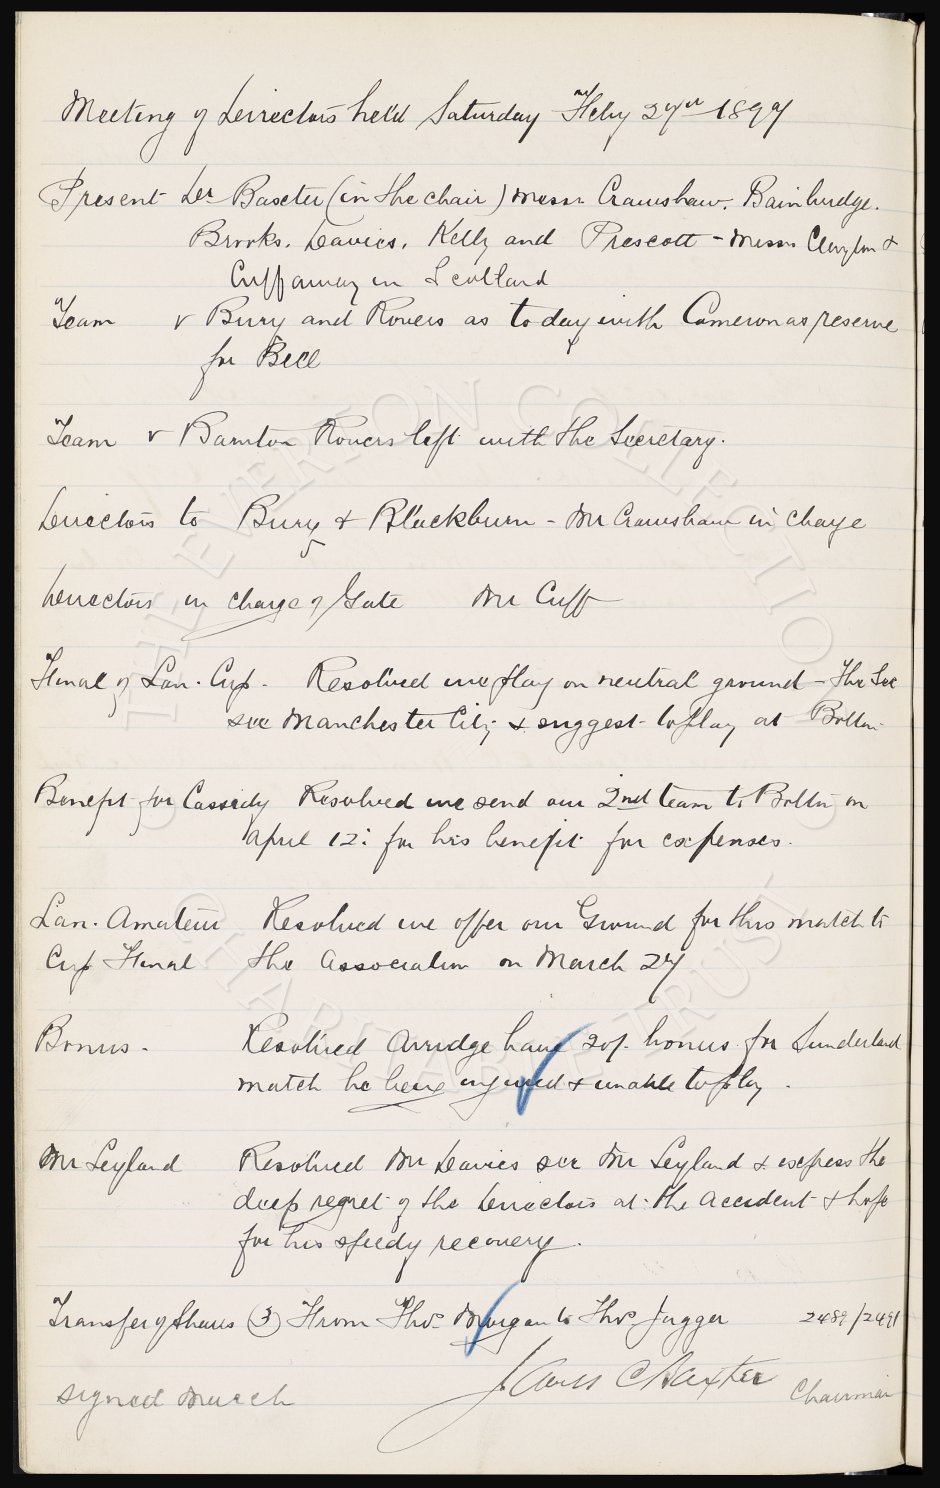 Meeting of Directors held Saturday Feby 27th 1897
Present Dr Baxter (in the chair) Messrs Crawshaw. Bainbridge.
Brooks. Davies. Kelly and Prescott - Messrs Clayton &
Cuff away in Scotland
Team v Bury and Rovers as today with Cameron as reserve
for Bell
Team v Barnton Rovers left with the Secretary.
Directors to Bury & Blackburn - Mr Crawshaw in charge
Directors in charge of Gate Mr Cuff
Final of Lan. Cup. Resolved we play on neutral ground - The Sec
see Manchester City & suggest to play at Bolton
Benefit for Cassidy Resolved we send our 2nd team to Bolton on
April 12: for his benefit for expenses.
Lan. Amateur Resolved we offer our Ground for this match to
Cup Final the Association on March 27
Bonus. Resolved Arridge have 20/- bonus for Sunderland
match he being injured & unable to play.
Mr Leyland Resolved Mr Davies see Mr Leyland & express the
deep regret of the Directors at the accident & hope
for his speedy recovery.
Transfer of Shares (3) From Thos Morgan to Thos Jagger 2489/2491
signed March James C Baxter Chairman
THE EVERTON COLLECTION
CHARITABLE TRUST